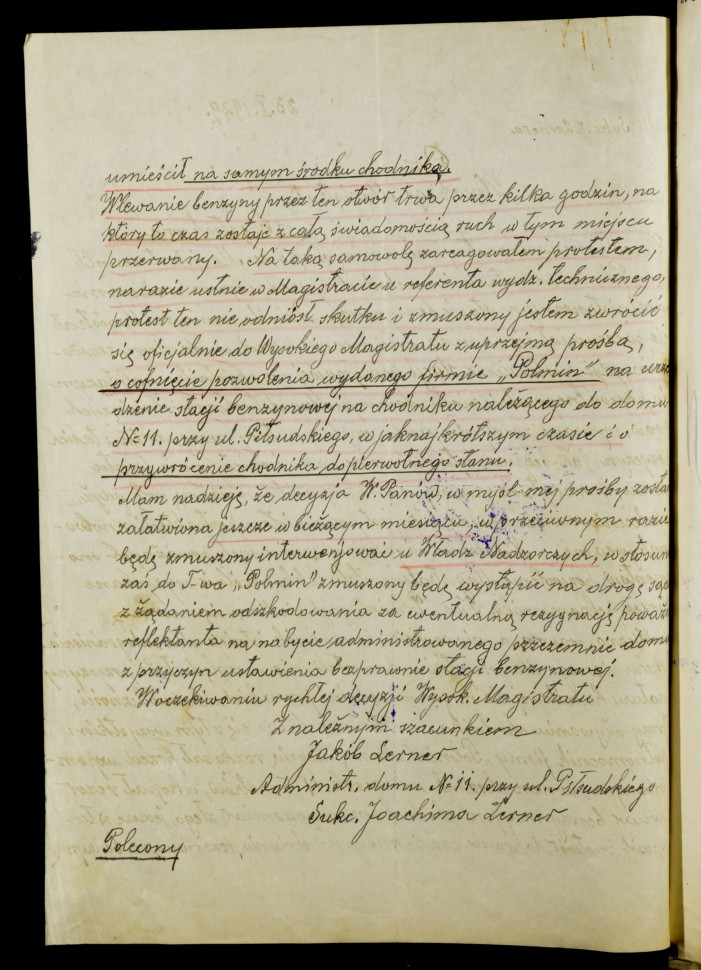 umieścił na samym środku chodnika.
Wlewanie benzyny przez ten otwór trwa przez kilka godzin, na
który to czas zostaje z całą świadomością ruch w tym miejscu
przerwany. Na taką samowolę zareagowałem protestem,
narazie ustnie w Magistracie u referenta wydz. technicznego,
protest ten nie odniósł skutku i zmuszony jestem zwrócić
się oficjalnie do Wysokiego Magistratu z uprzejmą prośbą,
o cofnięcie pozwolenia wydanego firmie „Polmin" na urzą
dzenie stacji benzynowej na chodniku należącego do domu
№ 11. przy ul. Piłsudskiego, w jaknajkrótszym czasie i o
przywrócenie chodnika do pierwotnego stanu.
Mam nadzieję, że decyzja W. Panów, w myśl mej prośby zosta
załatwiona jeszcze w bieżącym miesiącu, w przeciwnym razie
będę zmuszony interwenjować u Władz Nadzorczych, w stosun
zaś do T-wa „Polmin" zmuszony będę wystąpić na drogę są
z żądaniem odszkodowania za ewentualną rezygnację poważn
reflektanta na nabycie administrowanego przezemnie domu
z przyczyn ustawienia bezprawnie stacji benzynowej.
W oczekiwaniu rychłej decyzji Wysok. Magistratu
Z należnym szacunkiem
Jakób Lerner
Administr. domu № 11. przy ul. Piłsudskiego
Sukc. Joachima Lerner
Polecony